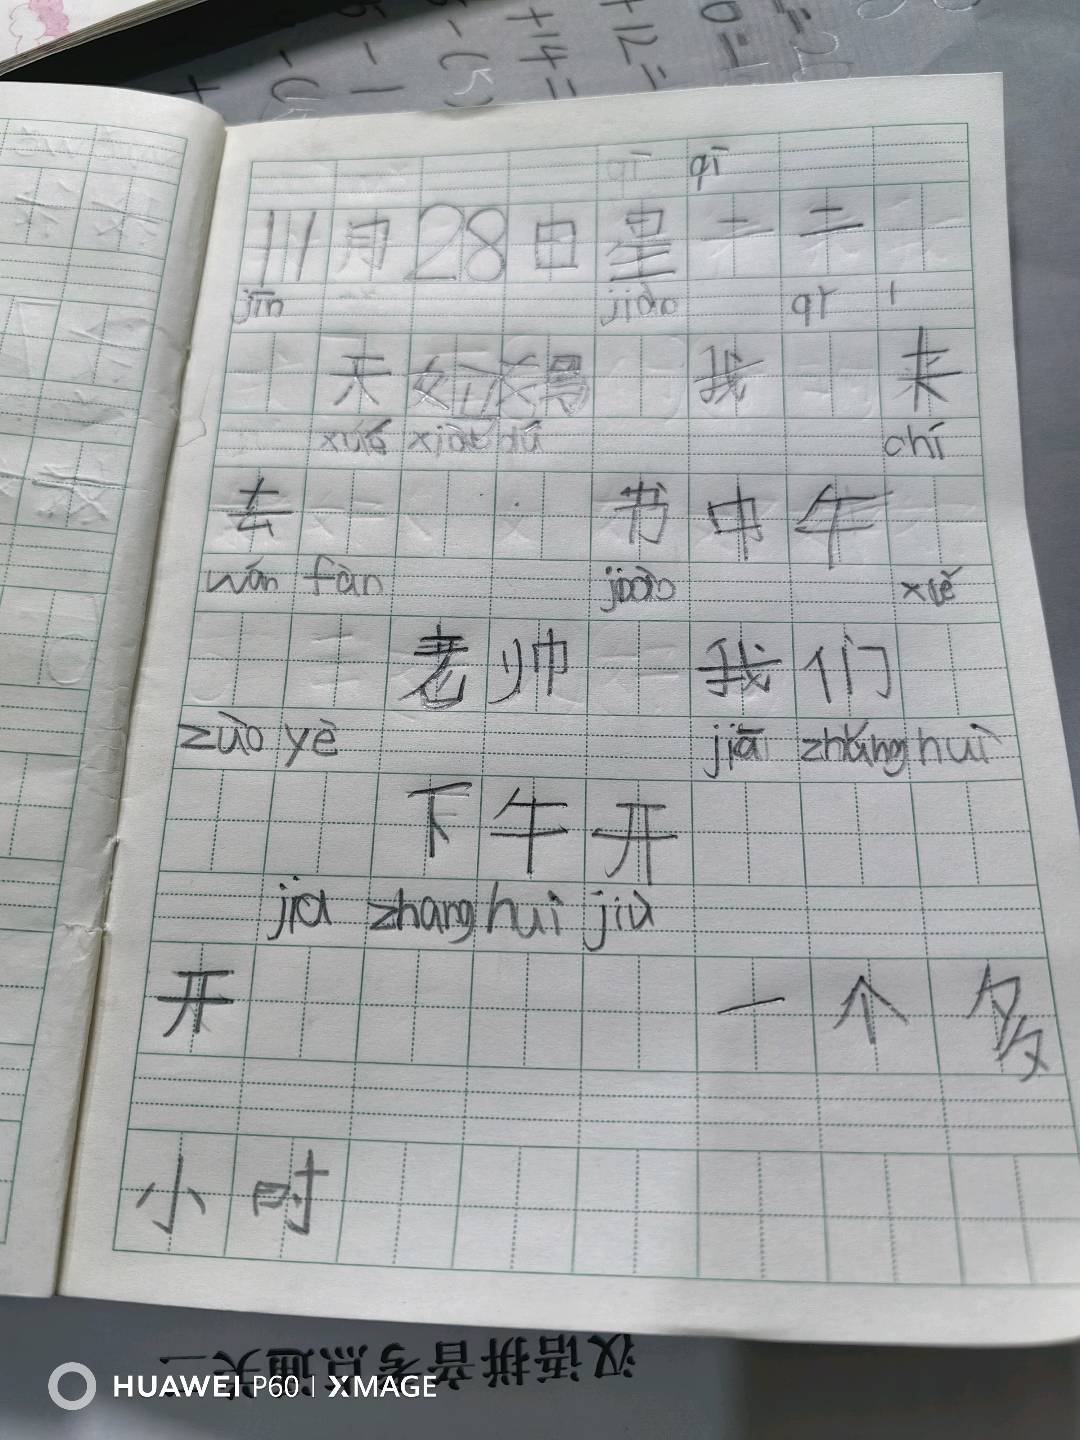 qī
11月28日星
jīn jiào qǐ
天妈妈 我 来
xué xiào dú chī
去 书中午
wán fàn jiào xiě
老师 我们
zuò yè jiā zhǎng huì
下午开
jiā zhang hui jiù
开 一个多
小时
汉语拼音考点通关一
HUAWEI P60 | XMAGE